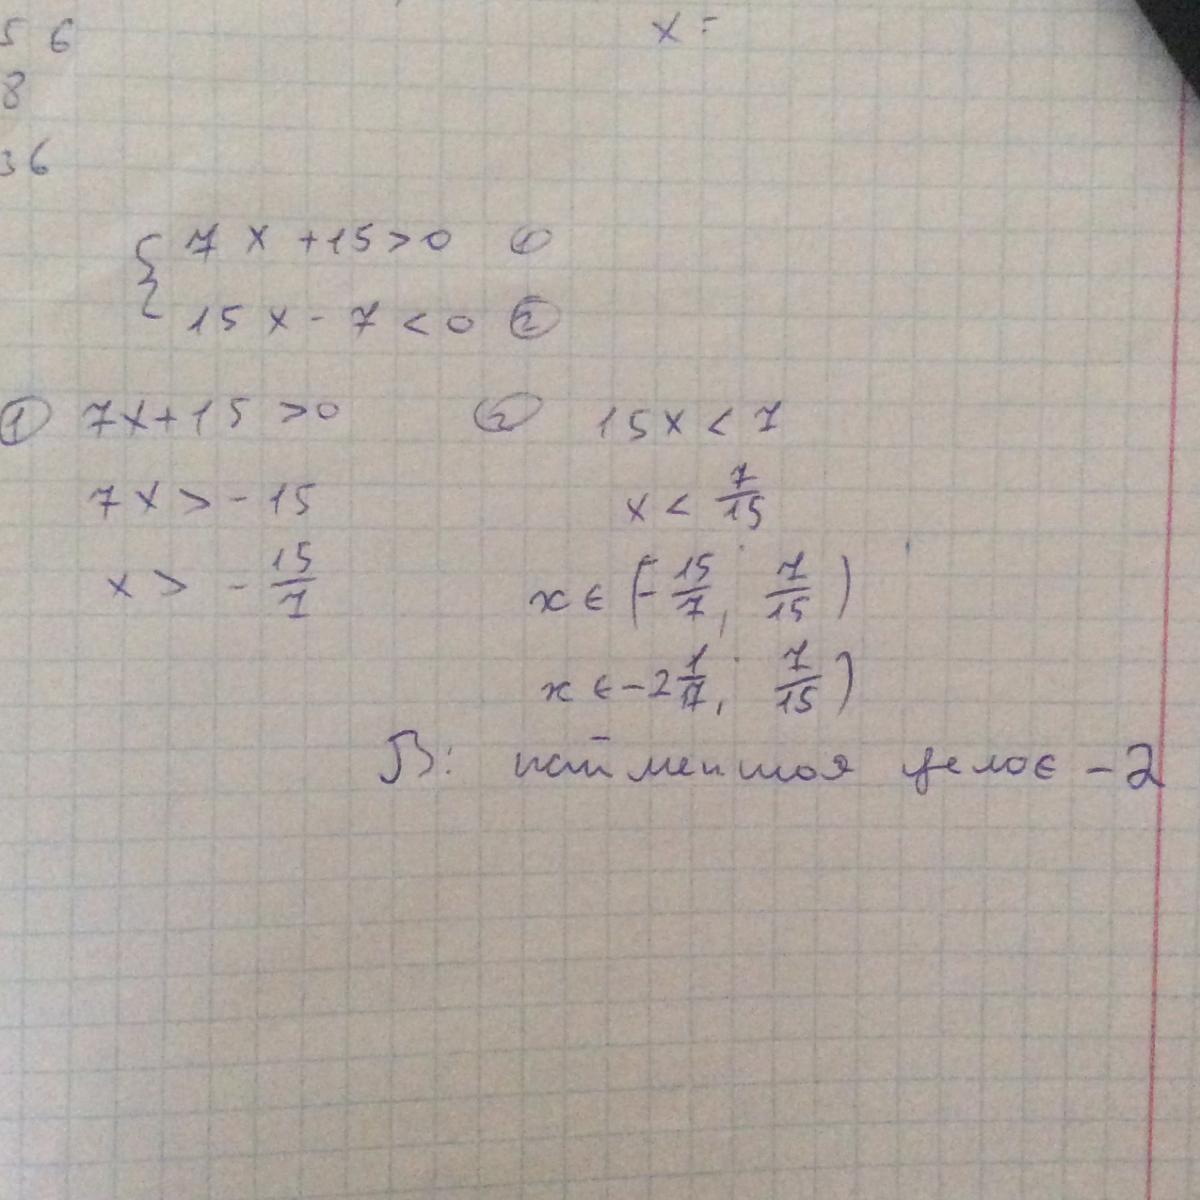 5 6
x =
8
36
{ 7x + 15 > 0 ①
15x - 7 < 0 ②
① 7x + 15 > 0
7x > - 15
x > - 15/7
② 15x < 7
x < 7/15
x ∈ (- 15/7 ; 7/15 )
x ∈ - 2 1/7 ; 7/15 )
В: найменшоя целое - 2